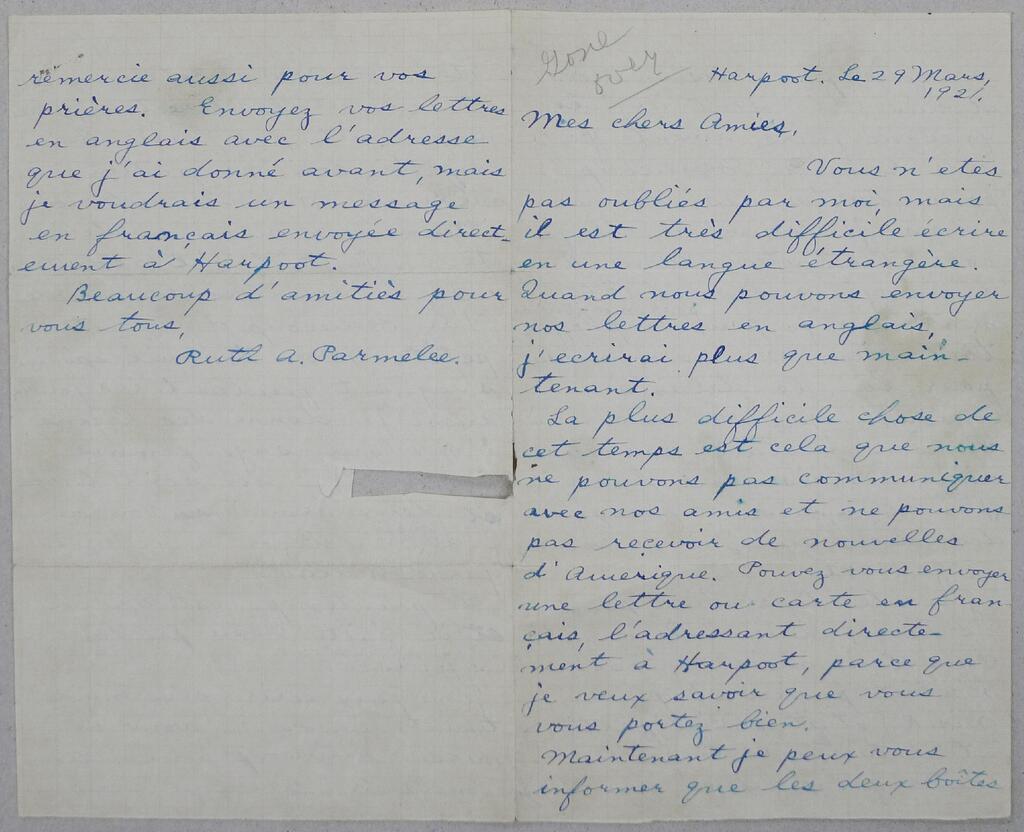 Gone
over
Harpoot. Le 29 Mars,
1921.
Mes chers Amies,
Vous n'etes
pas oubliés par moi, mais
il est très difficile écrire
en une langue étrangère.
Quand nous pouvons envoyer
nos lettres en anglais,
j'ecrirai plus que main-
tenant.
La plus difficile chose de
cet temps est cela que nous
ne pouvons pas communiquer
avec nos amis et ne pouvons
pas recevoir de nouvelles
d'Amerique. Pouvez vous envoyer
une lettre ou carte en fran-
çais, l'adressant directe-
ment à Harpoot, parce que
je veux savoir que vous
vous portez bien.
Maintenant je peux vous
informer que les deux boîtes
remercie aussi pour vos
prières. Envoyez vos lettres
en anglais avec l'adresse
que j'ai donné avant, mais
je voudrais un message
en français envoyée direct-
ement à Harpoot.
Beaucoup d'amitiés pour
vous tous,
Ruth A. Parmelee.